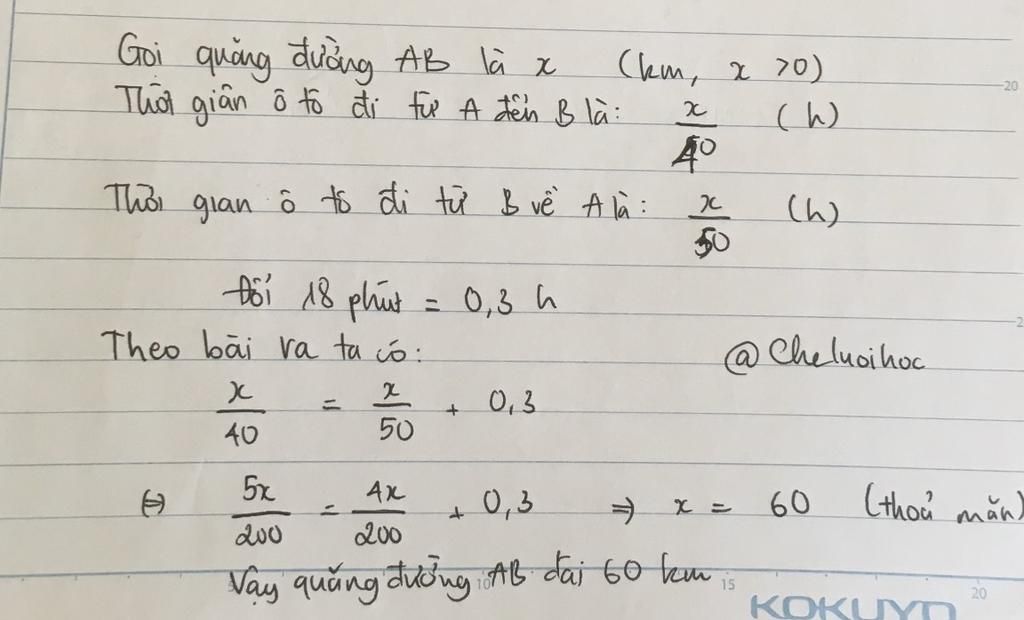 Gọi quãng đường AB là x (km, x >0)
Thời gian ô tô đi từ A đến B là: x/40 (h)
Thời gian ô tô đi từ B về A là: x/50 (h)
Đổi 18 phút = 0,3 h
Theo bài ra ta có:
@Cheluoihoc
x/40 = x/50 + 0,3
⇔ 5x/200 = 4x/200 + 0,3 ⇒ x = 60 (thoả mãn)
Vậy quãng đường AB dài 60 km
10 15 20
20
2
KOKUYO